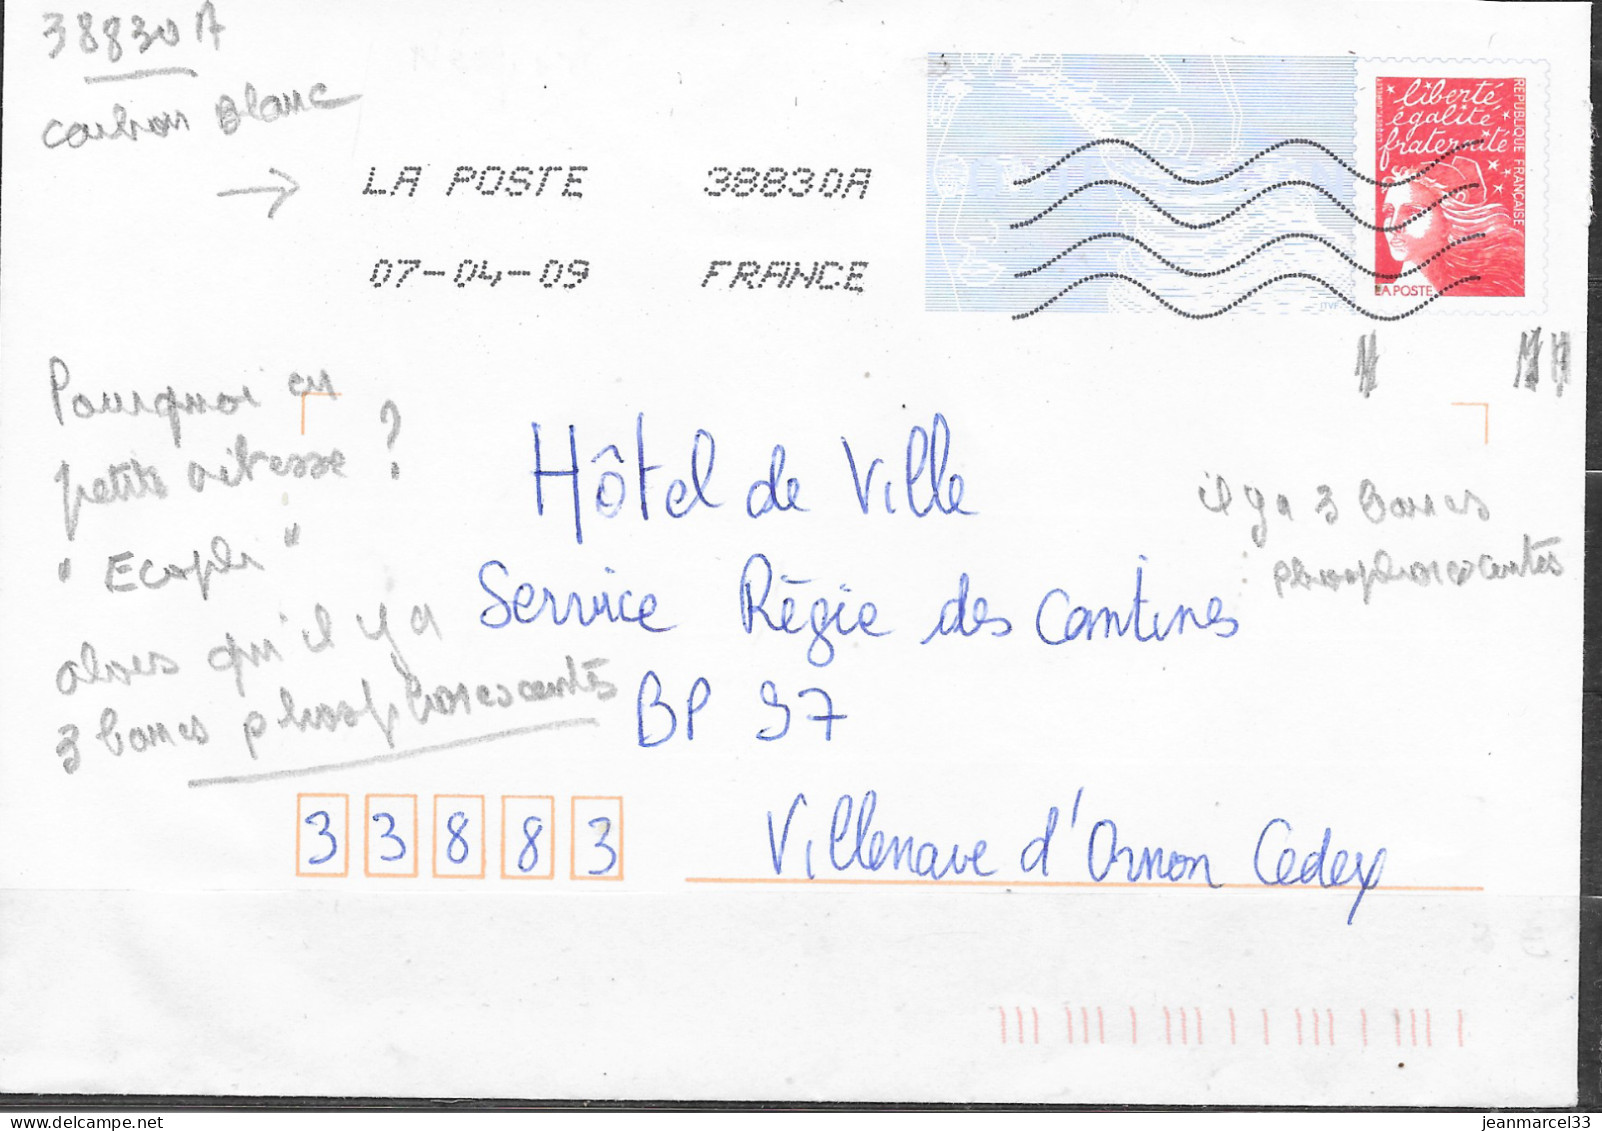 38830A
carbon Blanc
LA POSTE 38830A
07-04-09 FRANCE
liberté
égalité
fraternité
REPUBLIQUE FRANÇAISE
LA POSTE
ITVF
Pourquoi en
petite vitesse ?
" Ecopli "
alors qu'il y a
3 barres phosphorescentes
il y a 3 barres
phosphorescentes
Hôtel de Ville
Service Régie des Cantines
BP 97
33883 Villenave d'Ornon Cedex
3 €
jeanmarcel33